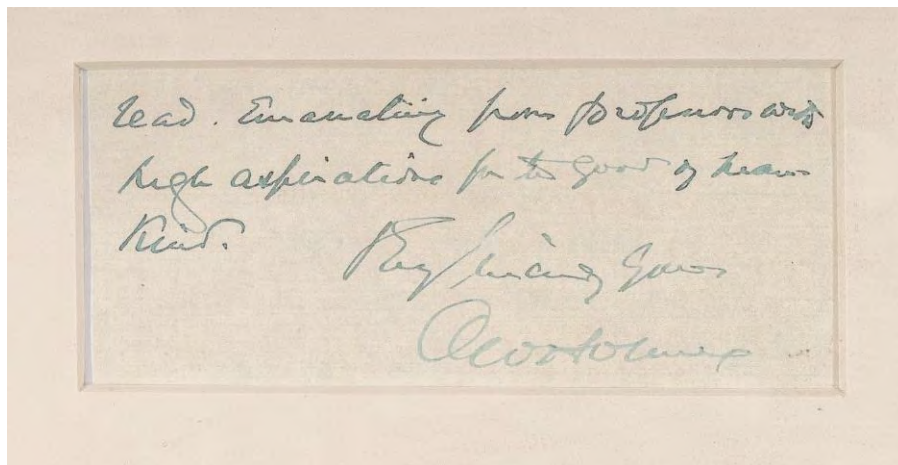 read. Emanating from professors with
high aspirations for the good of man-
kind.
Very sincerely yours
O W Holmes